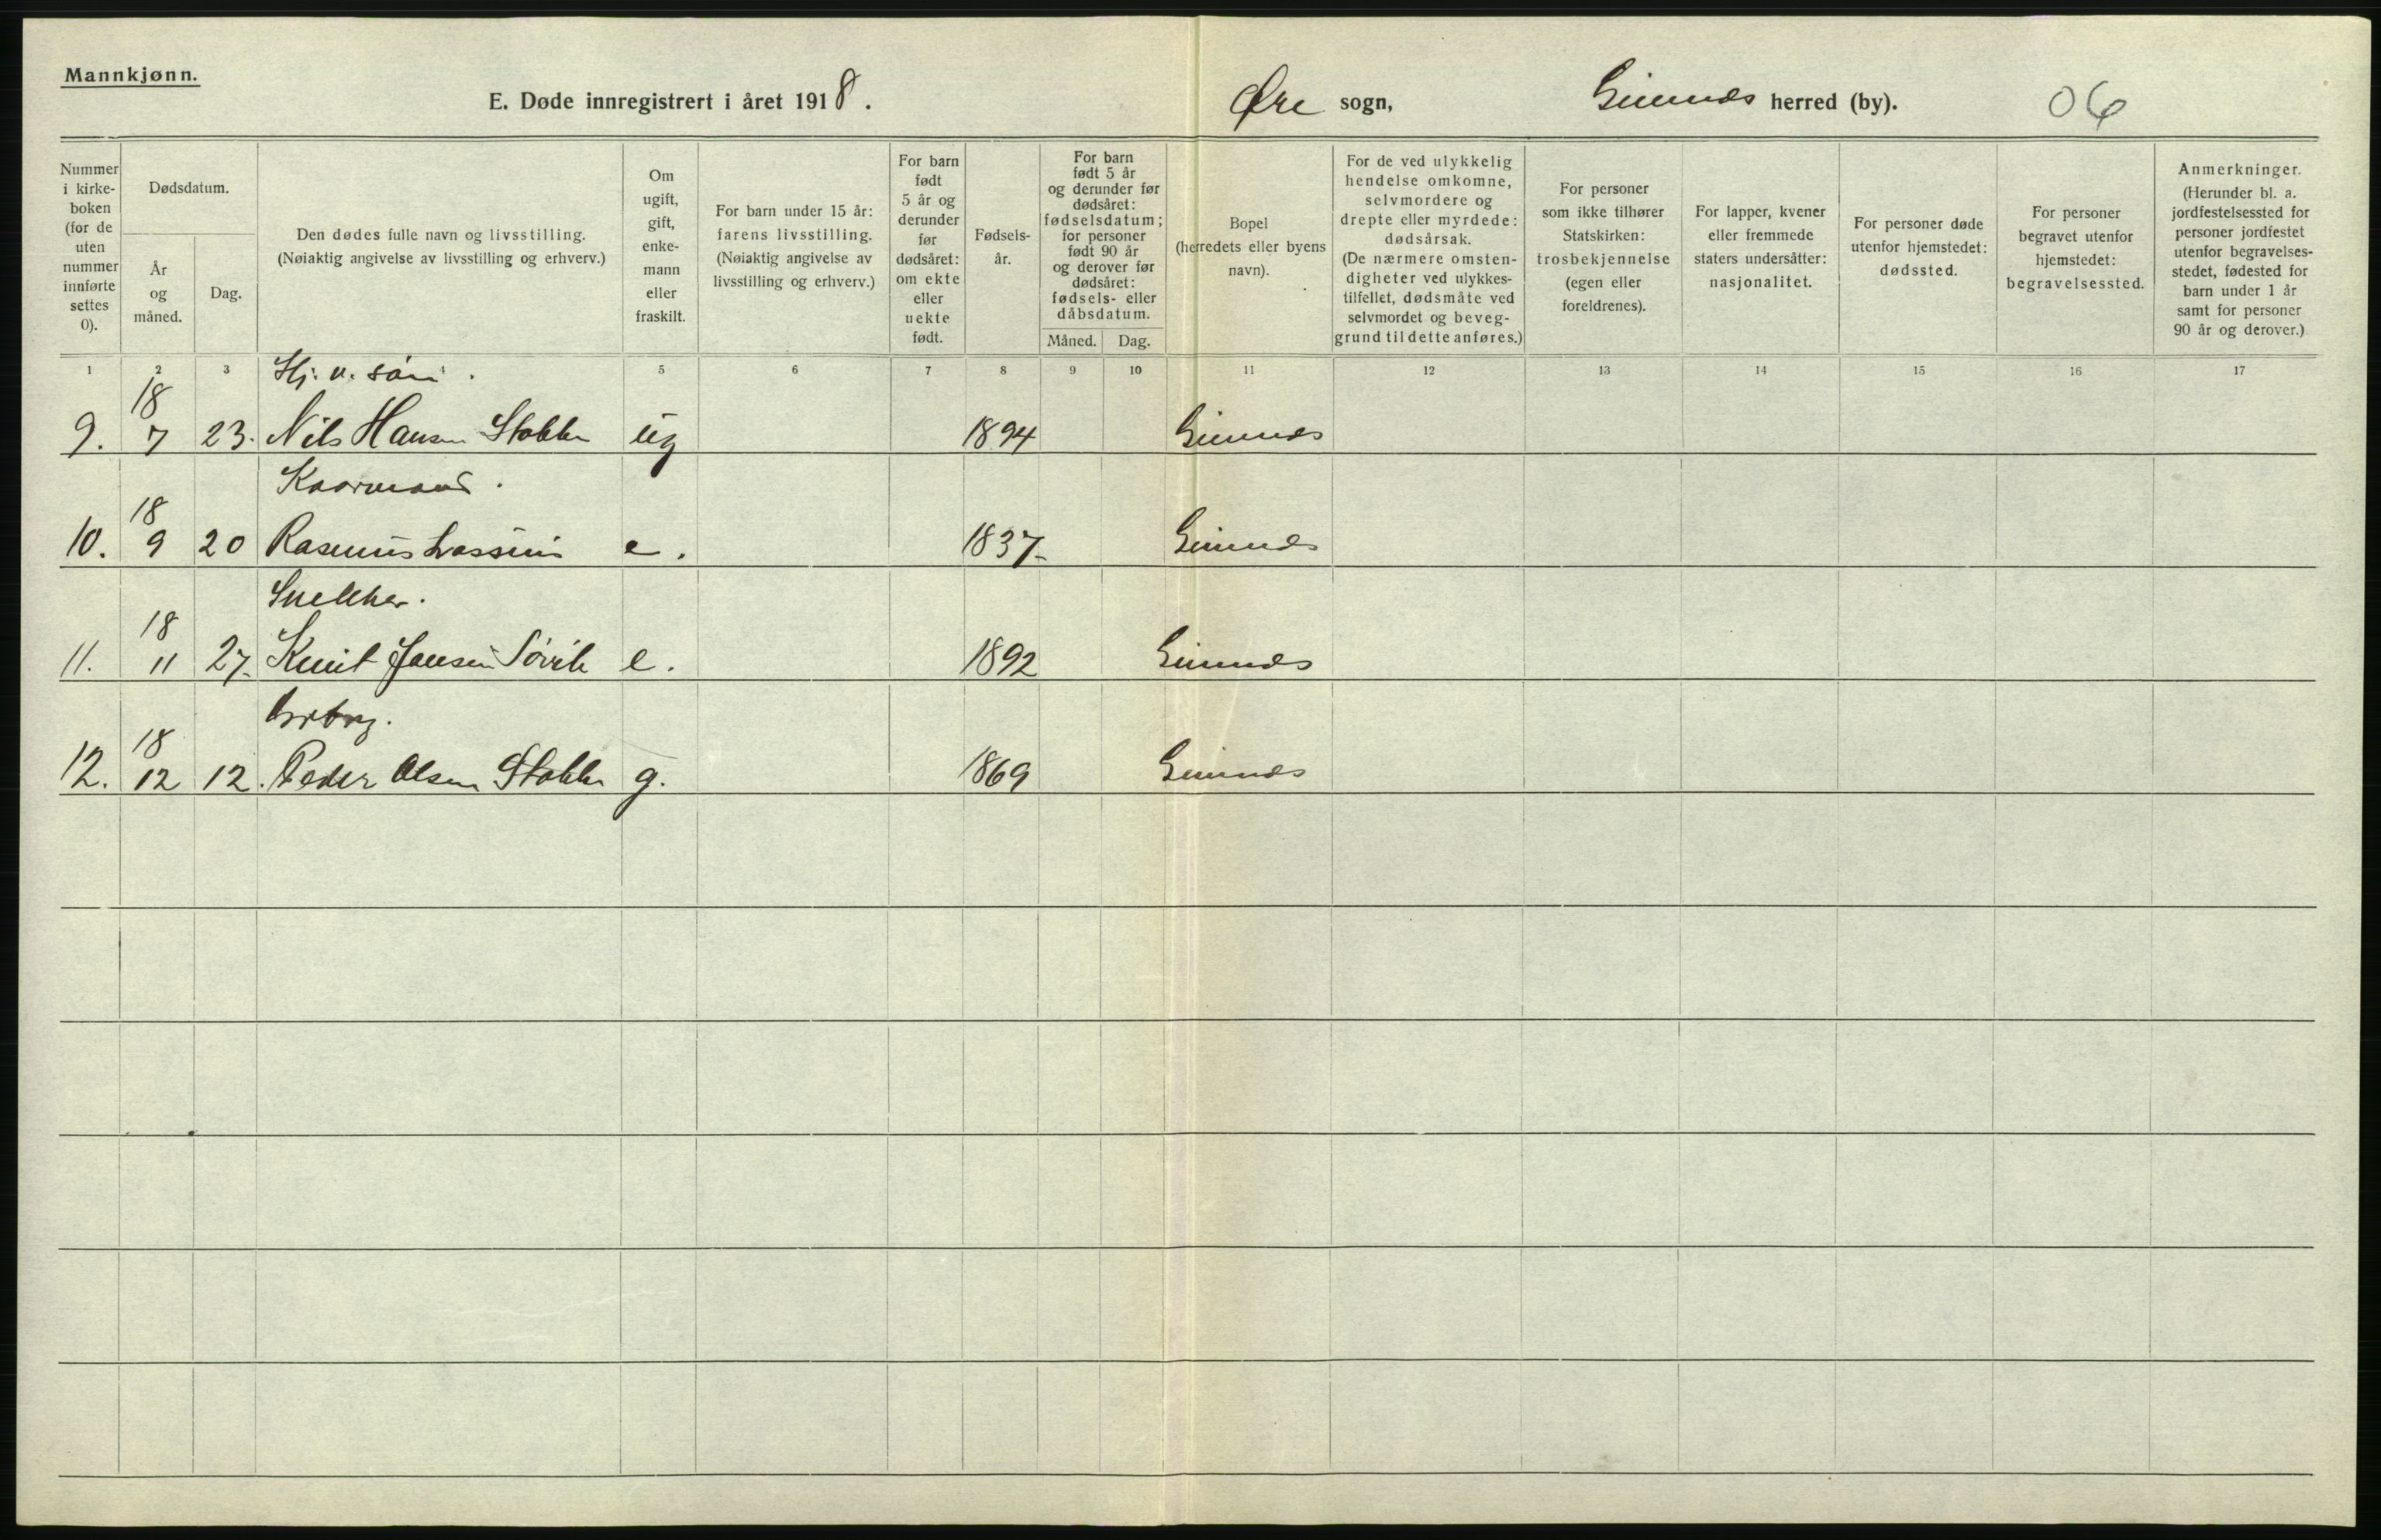 Mannkjønn.
E. Døde innregistrert i året 1918.
Øre sogn, Gimnes herred (by). 06
Nummer i kirke- boken (for de uten nummer innførte settes 0).
Dødsdatum.
År og måned.
Dag.
Den dødes fulle navn og livsstilling.
(Nøiaktig angivelse av livsstilling og erhverv.)
Om ugift, gift, enke- mann eller fraskilt.
For barn under 15 år: farens livsstilling. (Nøiaktig angivelse av livsstilling og erhverv.)
For barn født 5 år og derunder før dødsåret: om ekte eller uekte født.
Fødsels- år.
For barn født 5 år og derunder før dødsåret: fødselsdatum; for personer født 90 år og derover før dødsåret: fødsels- eller dåbsdatum.
Måned. Dag.
Bopel (herredets eller byens navn).
For de ved ulykkelig hendelse omkomne, selvmordere og drepte eller myrdede: dødsårsak. (De nærmere omsten- digheter ved ulykkes- tilfellet, dødsmåte ved selvmordet og beveg- grund til dette anføres.)
For personer som ikke tilhører Statskirken: trosbekjennelse (egen eller foreldrenes).
For lapper, kvener eller fremmede staters undersåtter: nasjonalitet.
For personer døde utenfor hjemstedet: dødssted.
For personer begravet utenfor hjemstedet: begravelsessted.
Anmerkninger. (Herunder bl. a. jordfestelsessted for personer jordfestet utenfor begravelses- stedet, fødested for barn under 1 år samt for personer 90 år og derover.)
1 2 3 5 6 7 8 9 10 11 12 13 14 15 16 17
Hj. v. søn.
18
9. 7 23. Nils Hansen Stokke ug 1894 Gimnes
Kaarmand.
18
10. 9 20 Rasmus Lassen e. 1837- Gimnes
Snekker.
18
11. 11 27. Knut Jansen e. 1892 Gimnes
18
12. 12 12. Peder Olsen Stokke g. 1869 Gimnes